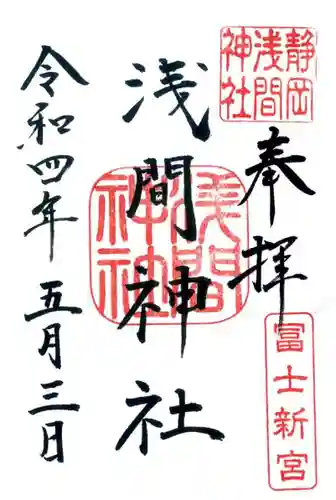 奉拝
静岡浅間神社
冨士新宮
浅間神社
浅間神社
令和四年 五月三日